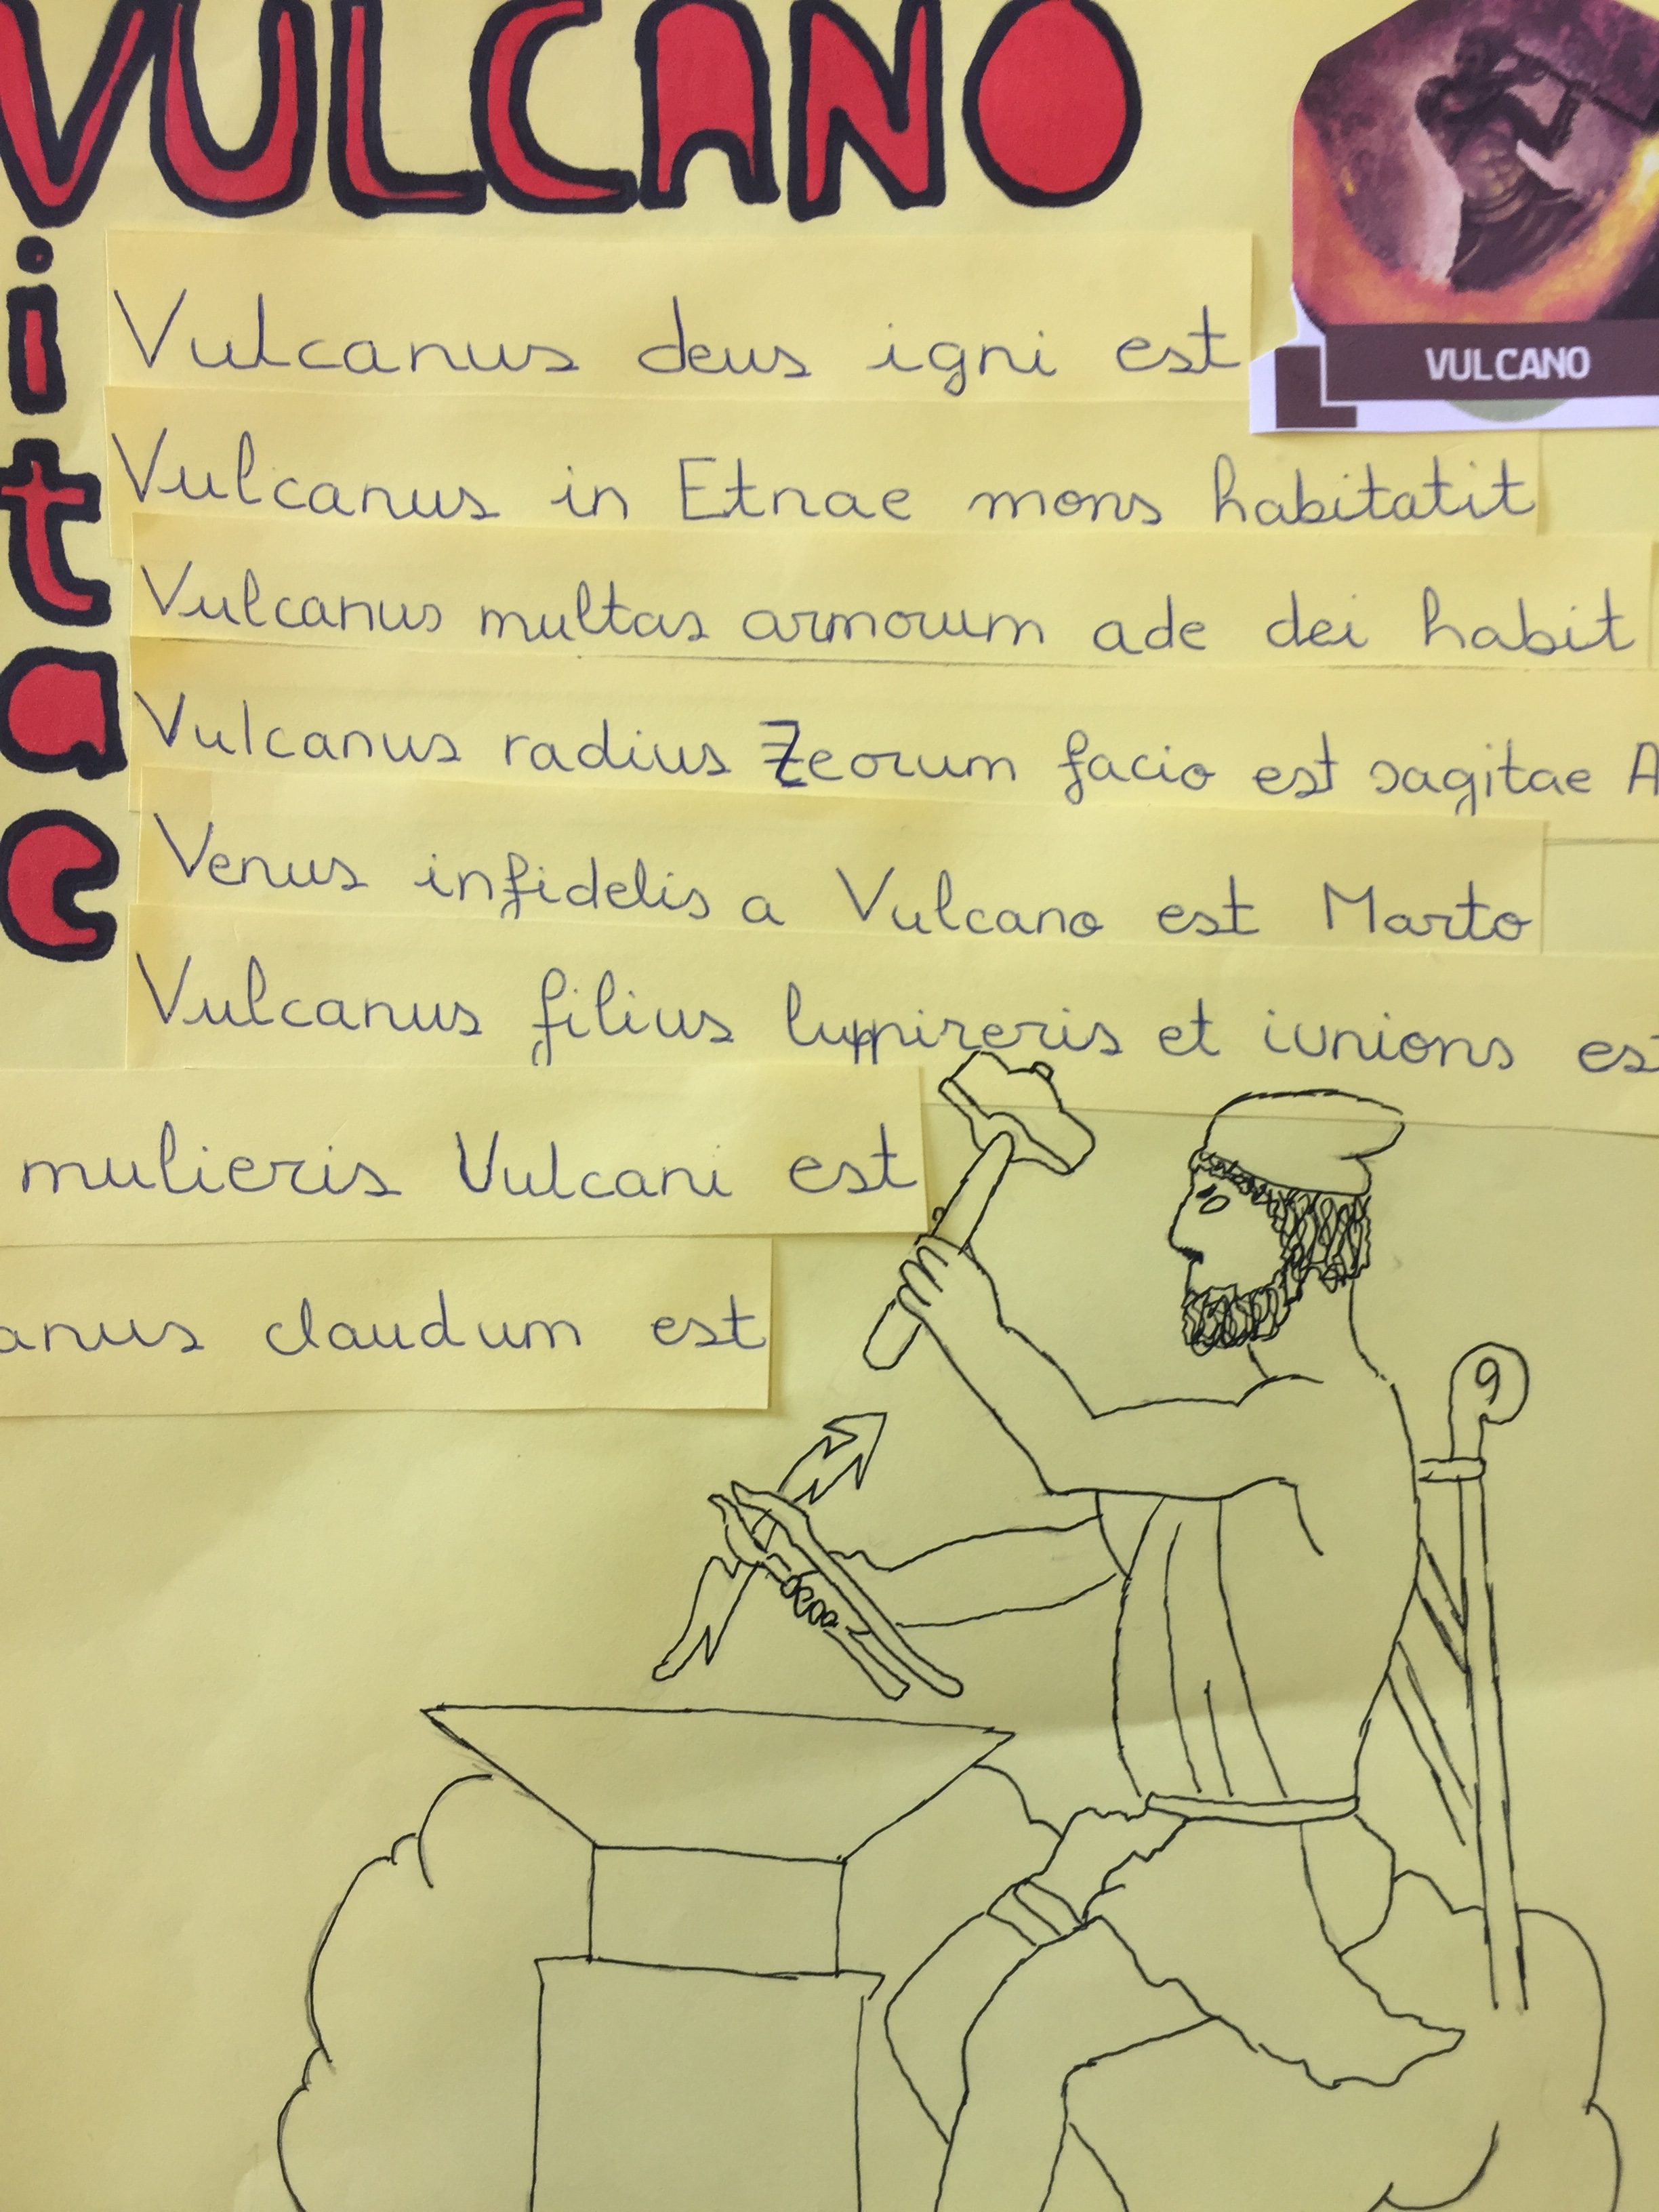 VULCANO
itae
VULCANO
Vulcanus deus igni est
Vulcanus in Etnae mons habitatit
Vulcanus multas armorum ade dei habit
Vulcanus radius Zeorum facio est sagitae A
Venus infidelis a Vulcano est Marto
Vulcanus filius et iunions es
mulieris Vulcani est
anus claudum est